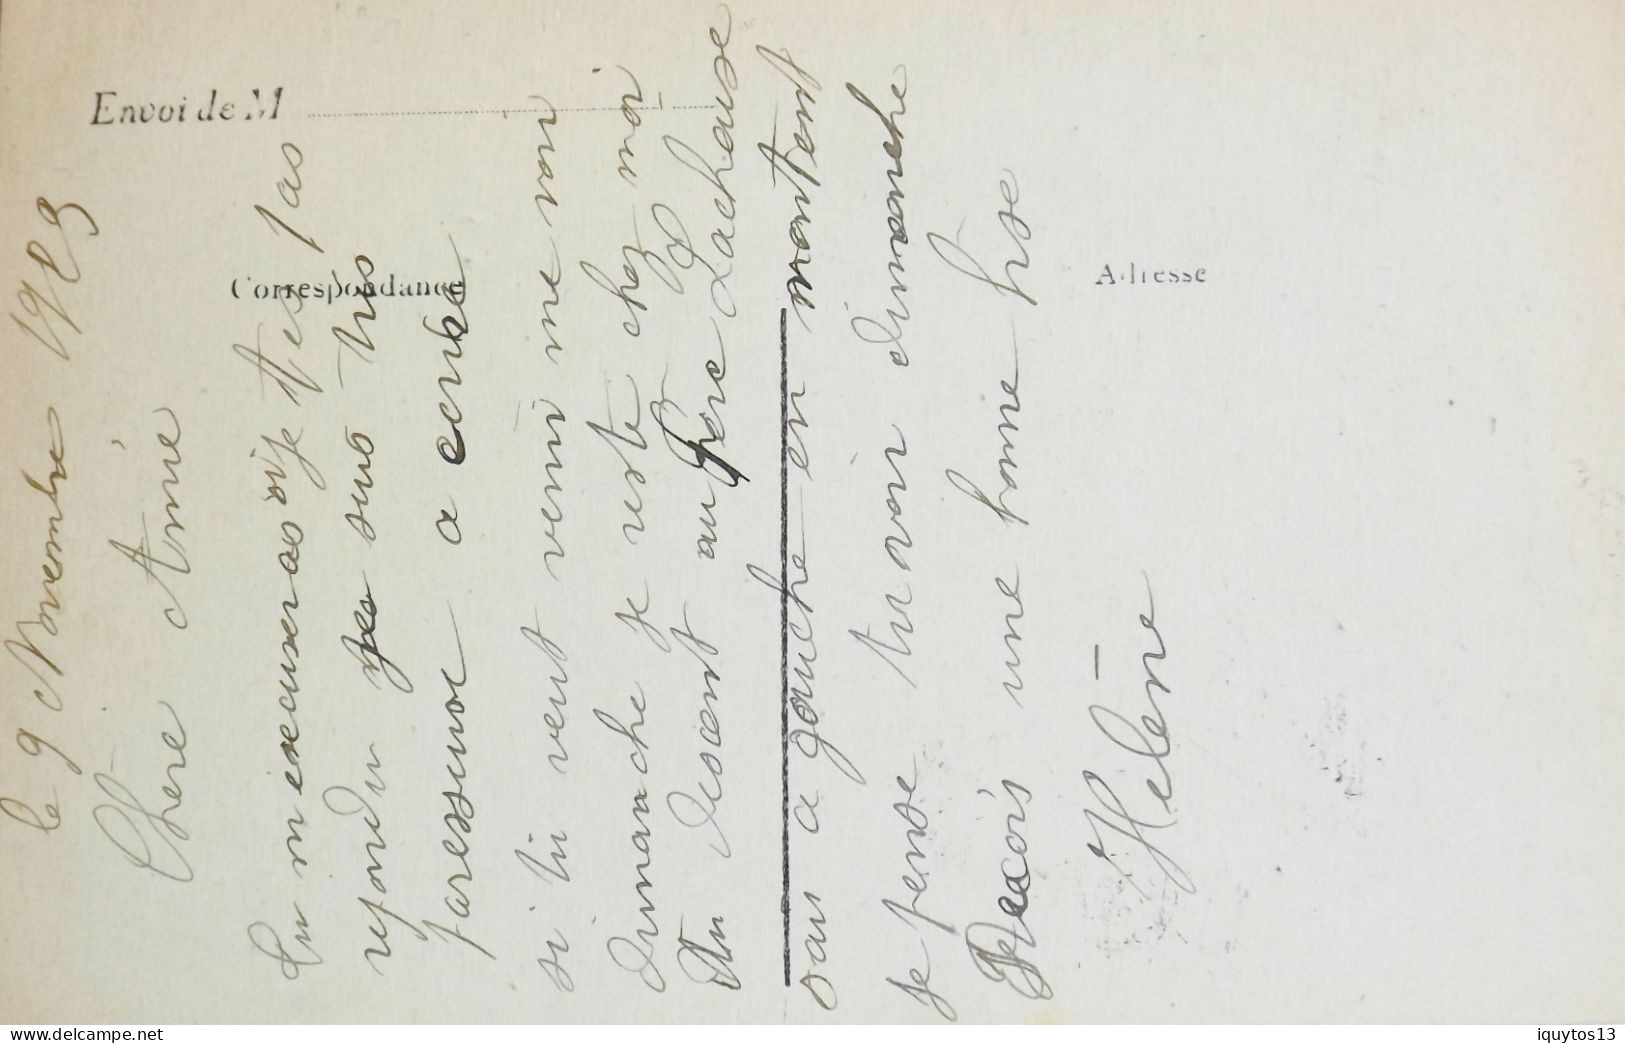 Envoi de M
Correspondance
Adresse
le 9 Novembre 1913
Chère Amie
Tu m excuseras si je t es pas
repondu je suis très
paressuse a ecrire
si tu veut venir me voir
dimanche je reste chez moi
Tu desent au père Lachaise
a gauche en montant
je pense tu voir dimanche
Recois une bonne bise
Helène
www.delcampe.net
iquytos13